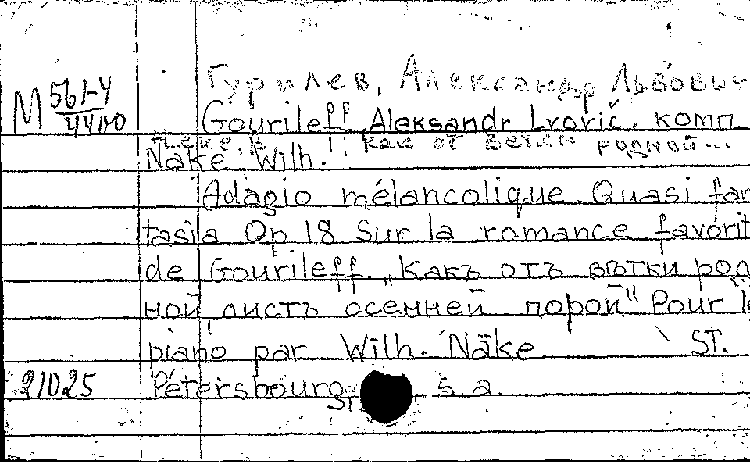 Гурилев, Александр Львович
М 561-4
44110
Gourileff Aleksandr Lvovič, комп.
как от ветки родной...
Näke Wilh.
Adagio mélancolique Quasi fan
tasia Op 18 Sur la romance favorit
de Gourileff. „Какъ отъ вѣтки род
ной листъ осенней порой" Pour l
piano par Wilh. Näke ST.
21025 Pétersbourg s. a.